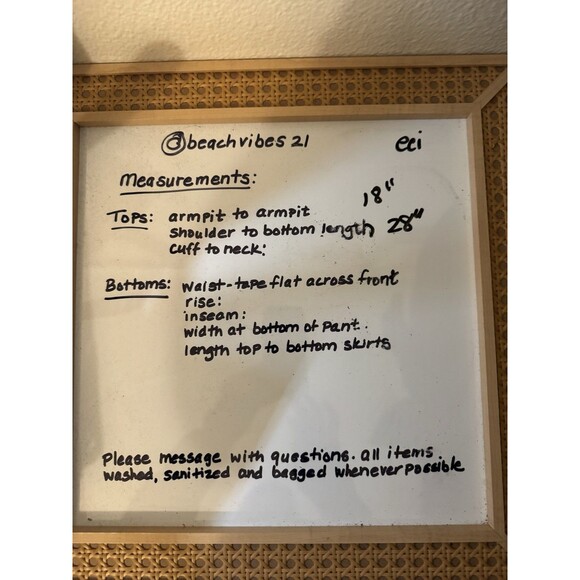 @beachvibes 21
eci
Measurements:
Tops: armpit to armpit 18"
shoulder to bottom length 28"
cuff to neck:
Bottoms: waist-tape flat across front
rise:
inseam:
width at bottom of pant.
length top to bottom skirts
Please message with questions. all items.
washed, sanitized and bagged whenever possible